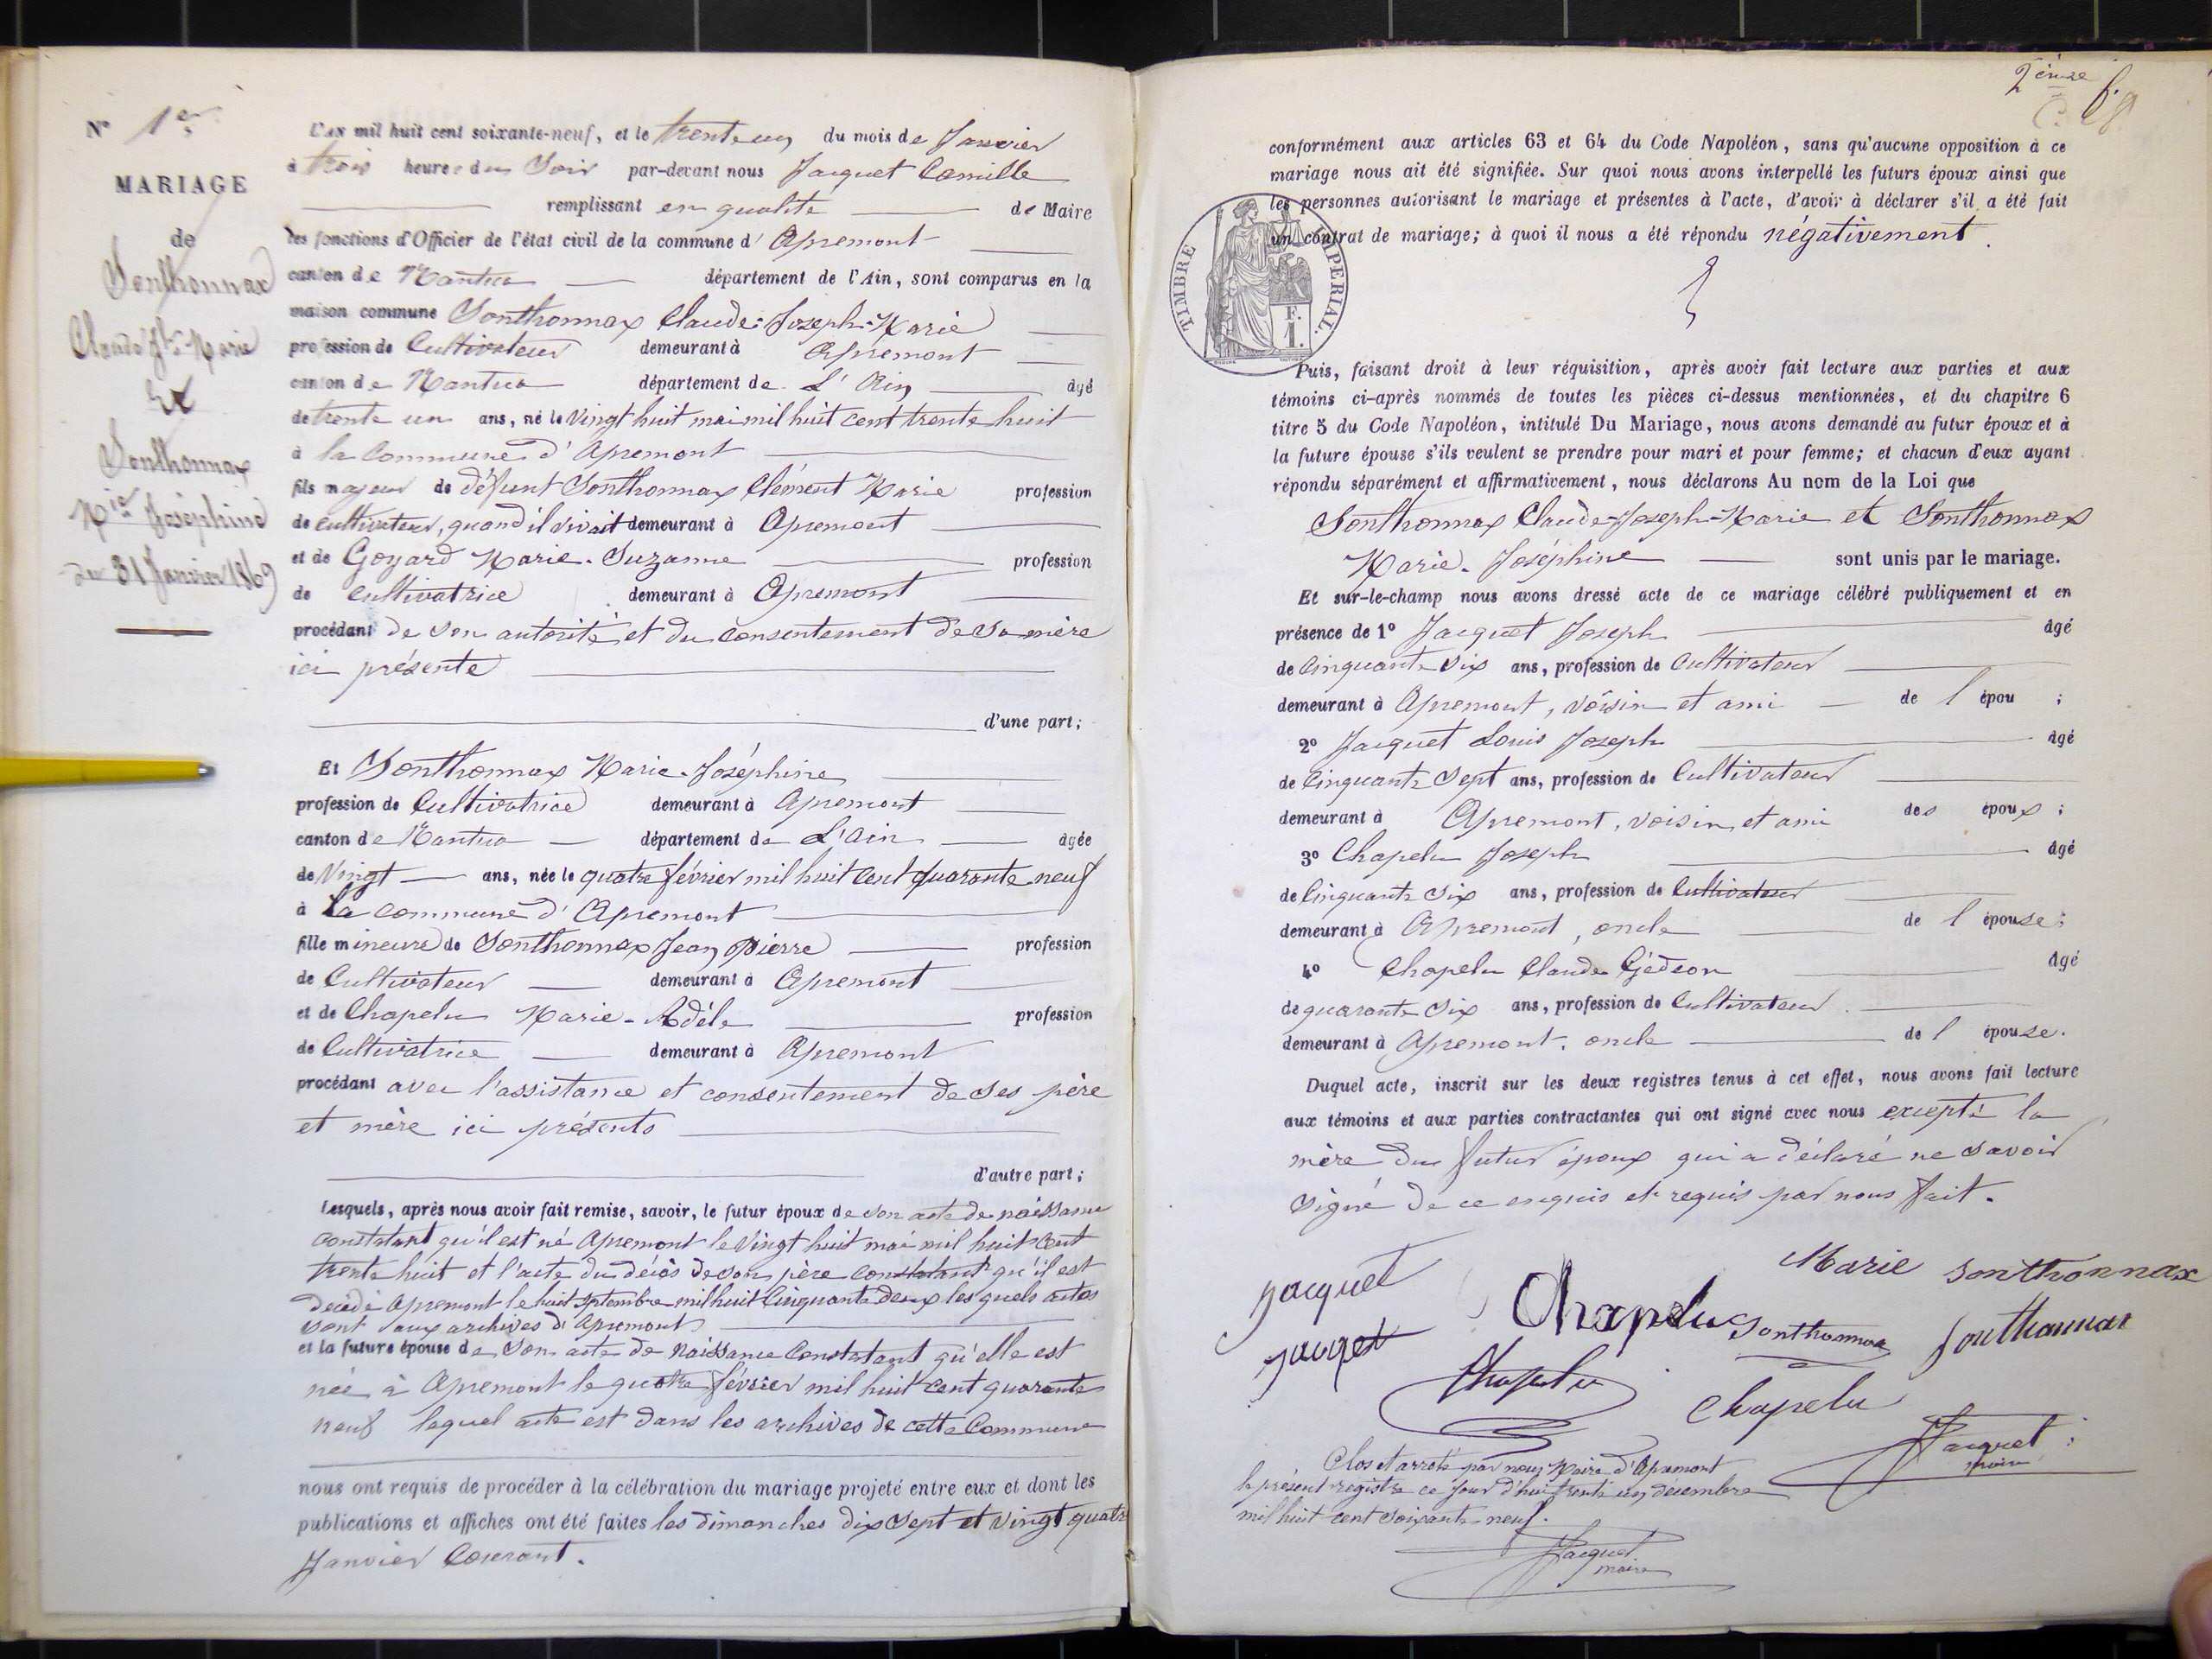 N° 1er
MARIAGE
de
Sonthonnax
Claude Jh Marie
Et
Sonthonnax
Mie Joséphine
du 31 Janvier 1869
L'AN mil huit cent soixante-neuf, et le trente un du mois de Janvier
à trois heures du Soir par-devant nous Jacquet Camille
remplissant en qualité de Maire
les fonctions d'Officier de l'état civil de la commune d'Apremont
canton de Nantua département de l'Ain, sont comparus en la
maison commune Sonthonnax Claude-Joseph-Marie
profession de Cultivateur demeurant à Apremont
canton de Nantua département de L'Ain âgé
de trente un ans, né le vingt huit mai mil huit cent trente huit
à la Commune d'Apremont
fils majeur de défunt Sonthonnax Clément Marie profession
de cultivateur, quand il vivait demeurant à Apremont
et de Goyard Marie-Suzanne profession
de cultivatrice demeurant à Apremont
procédant de son autorité et du consentement de sa mère
ici présente
d'une part;
Et Sonthonnax Marie-Joséphine
profession de Cultivatrice demeurant à Apremont
canton de Nantua département de L'Ain âgée
de Vingt ans, née le quatre février mil huit cent quarante neuf
à La commune d'Apremont
fille mineure de Sonthonnax Jean Pierre profession
de Cultivateur demeurant à Apremont
et de Chapelu Marie-Adèle profession
de Cultivatrice demeurant à Apremont
procédant avec l'assistance et consentement de ses père
et mère ici présents
d'autre part;
Lesquels, après nous avoir fait remise, savoir, le futur époux de son acte de naissance
constatant qu'il est né Apremont le vingt huit mai mil huit cent
trente huit et l'acte du décès de son père constatant qu'il est
décédé Apremont le huit septembre mil huit cinquante deux les quels actes
sont aux archives d'Apremont
et la future épouse de son acte de naissance constatant qu'elle est
née à Apremont le quatre février mil huit cent quarante
neuf lequel acte est dans les archives de cette Commune
nous ont requis de procéder à la célébration du mariage projeté entre eux et dont les
publications et affiches ont été faites les dimanches dix sept et vingt quatre
Janvier Courant.
2ème f.
conformément aux articles 63 et 64 du Code Napoléon, sans qu'aucune opposition à ce
mariage nous ait été signifiée. Sur quoi nous avons interpellé les futurs époux ainsi que
les personnes autorisant le mariage et présentes à l'acte, d'avoir à déclarer s'il a été fait
un contrat de mariage; à quoi il nous a été répondu négativement.
TIMBRE IMPERIAL.
F.
1.
Puis, faisant droit à leur réquisition, après avoir fait lecture aux parties et aux
témoins ci-après nommés de toutes les pièces ci-dessus mentionnées, et du chapitre 6
titre 5 du Code Napoléon, intitulé Du Mariage, nous avons demandé au futur époux et à
la future épouse s'ils veulent se prendre pour mari et pour femme; et chacun d'eux ayant
répondu séparément et affirmativement, nous déclarons Au nom de la Loi que
Sonthonnax Claude-Joseph-Marie et Sonthonnax
Marie-Joséphine sont unis par le mariage.
Et sur-le-champ nous avons dressé acte de ce mariage célébré publiquement et en
présence de 1° Jacquet Joseph âgé
de Cinquante six ans, profession de Cultivateur
demeurant à Apremont, voisin et ami de l'épou ;
2° Jacquet Louis Joseph âgé
de Cinquante Sept ans, profession de Cultivateur
demeurant à Apremont, voisin et ami des époux ;
3° Chapelu Joseph âgé
de Cinquante Six ans, profession de Cultivateur
demeurant à Apremont, oncle de l'épouse;
4° Chapelu Claude Gédéon âgé
de quarante Six ans, profession de Cultivateur
demeurant à Apremont, oncle de l'épouse.
Duquel acte, inscrit sur les deux registres tenus à cet effet, nous avons fait lecture
aux témoins et aux parties contractantes qui ont signé avec nous excepté la
mère du futur époux qui a déclaré ne savoir
signé de ce enquis et requis par nous fait.
Marie Sonthonnax
Jacquet
Chapelu Sonthonnax Sonthonnax
Jacquet
Chapelu
Chapelu
Jacquet
maire
Clos et arrêté par nous Maire d'Apremont
le présent registre ce jour d'hui trente un décembre
mil huit cent soixante neuf.
Jacquet
maire